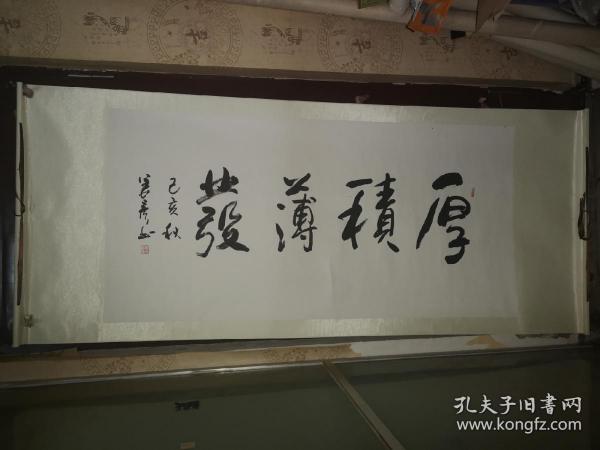 厚積薄發
己亥秋
孔夫子旧书网
www.kongfz.com